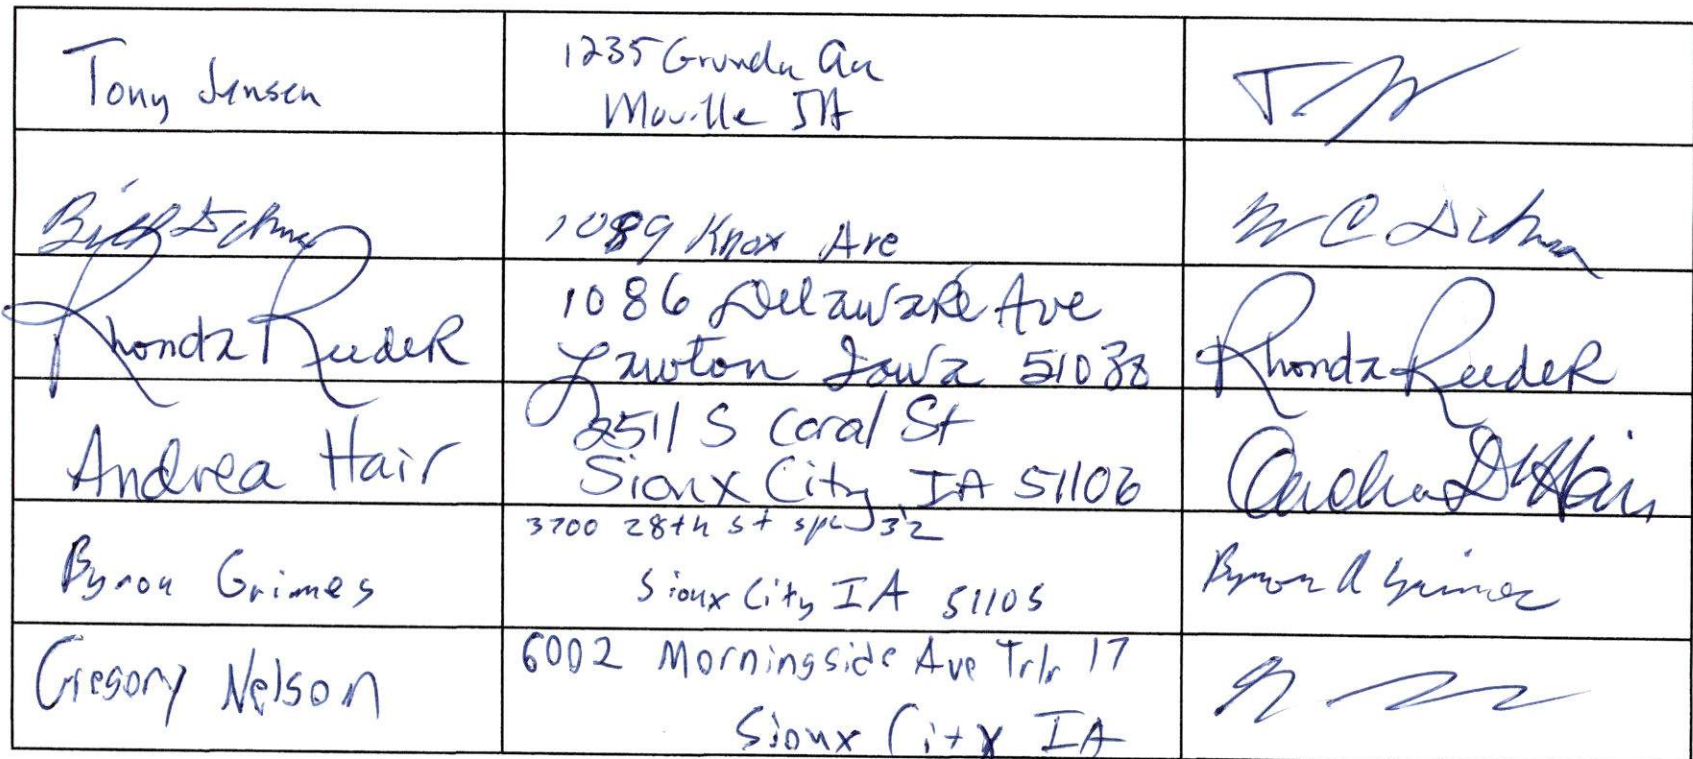 Tony Jensen
1235 Grundy Ave
Moville IA
1089 Knox Ave
Rhonda Reeder
1086 Delaware Ave
Lawton Iowa 51038
Rhonda Reeder
Andrea Hair
2511 S Coral St
Sioux City, IA 51106
Andrea D Hair
Byron Grimes
3700 28th st spc 32
Sioux City IA 51105
Byron A Grimes
Gregory Nelson
6002 Morningside Ave Trlr 17
Sioux City IA